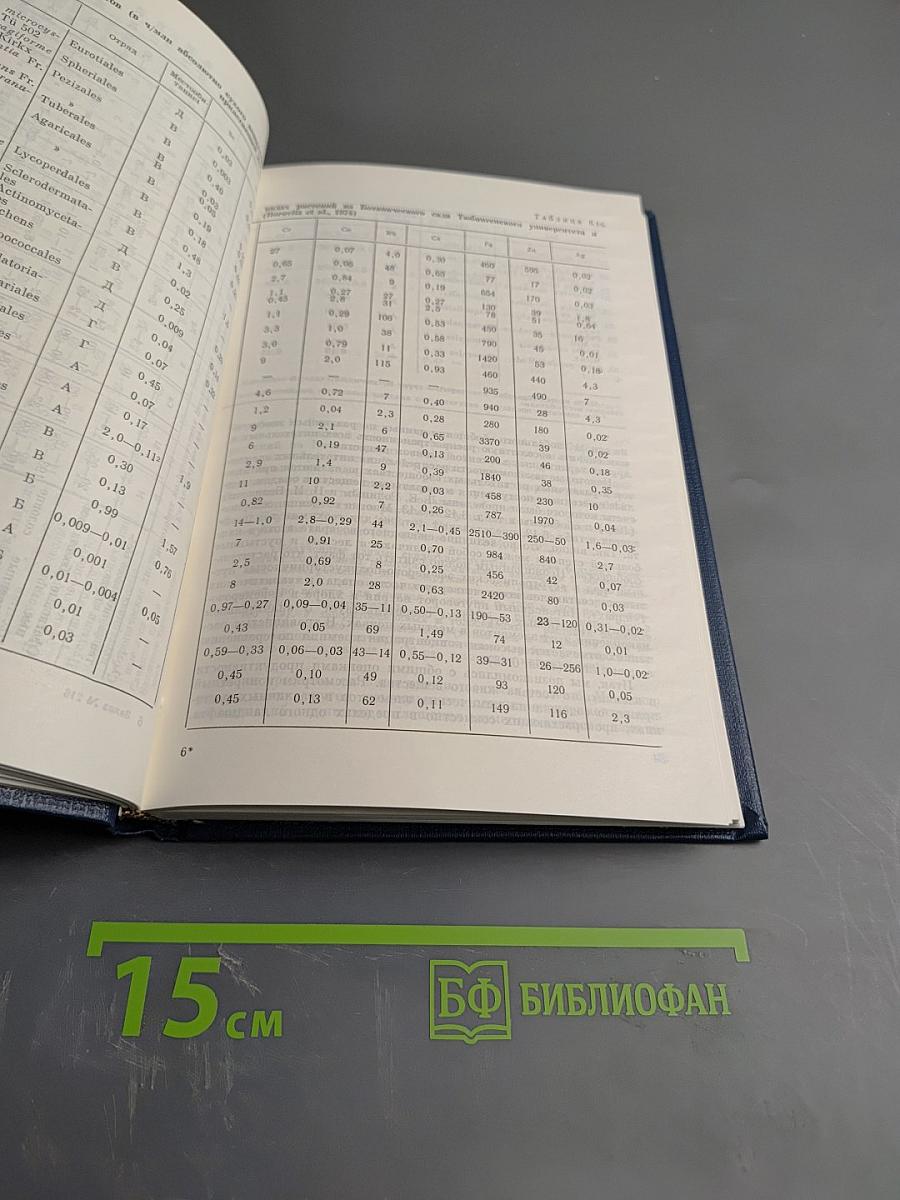 microcys-
Tü 502
Отряд
Eurotiales
Spheriales
Pezizales
»
Tuberales
Agaricales
»
Lycoperdales
Sclerodermata-
Actinomyceta-
Д
В
В
В
В
В
0,03
0,003
0,40
0,19
0,18
0,48
1,3
0,02
0,25
0,009
0,04
0,07
0,45
0,07
0,17
2,0—0,11²
0,30
0,13
0,99
0,009—0,01
0,001
0,01—0,004
0,01
0,03
1,9
1,57
0,76
0,05
6 Заказ № 216
Таблица
университета и
27 0,07 4,0 0,30 460 595 0,02
0,65 0,06 48 0,65 77 17 0,02
2,7 0,84 9 0,19 654 170 0,03
1,1 0,27 27 0,27 130 39 1,8
0,45 2,8 31 2,5 78 51 0,64
1,1 0,29 106 0,53 450 35 16
3,3 1,0 38 0,58 790 45 0,01
3,0 0,79 11 0,33 1420 53 0,18
9 2,0 115 0,93 460 440 4,3
— — — — 935 490 7
4,6 0,72 7 0,40 940 28 4,3
1,2 0,04 2,3 0,28 280 180 0,02
9 2,1 6 0,65 3370 39 0,02
6 0,19 47 0,13 200 46 0,18
2,9 1,4 9 0,39 1840 38 0,35
11 10 2,2 0,03 458 230 10
0,82 0,92 7 0,26 787 1970 0,04
14—1,0 2,8—0,29 44 2,1—0,45 2510—390 250—50 1,6—0,03
7 0,91 25 0,70 984 840 2,7
2,5 0,69 8 0,25 456 42 0,07
8 2,0 28 0,63 2420 80 0,03
0,97—0,27 0,09—0,04 35—11 0,50—0,13 190—53 23—120 0,31—0,02
0,43 0,05 69 1,49 74 12 0,01
0,59—0,33 0,06—0,03 43—14 0,55—0,12 39—31 26—256 1,0—0,02
0,45 0,10 49 0,12 93 120 0,05
0,45 0,13 62 0,11 149 116 2,3
6*
15 см
БФ БИБЛИОФАН